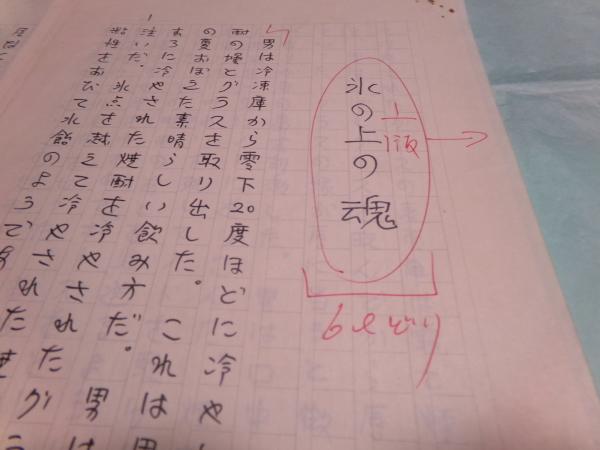 氷の上の魂
どり
男は冷凍庫から零下20度ほどに冷や
酎の壜とグラスを取り出した。これは
の夏おぼえた素晴らしい飲み方だ。男は
に冷やされた焼酎を冷やされたグ
注いだ。氷点を越えて冷やされた
粘性をおびて水飴のようで